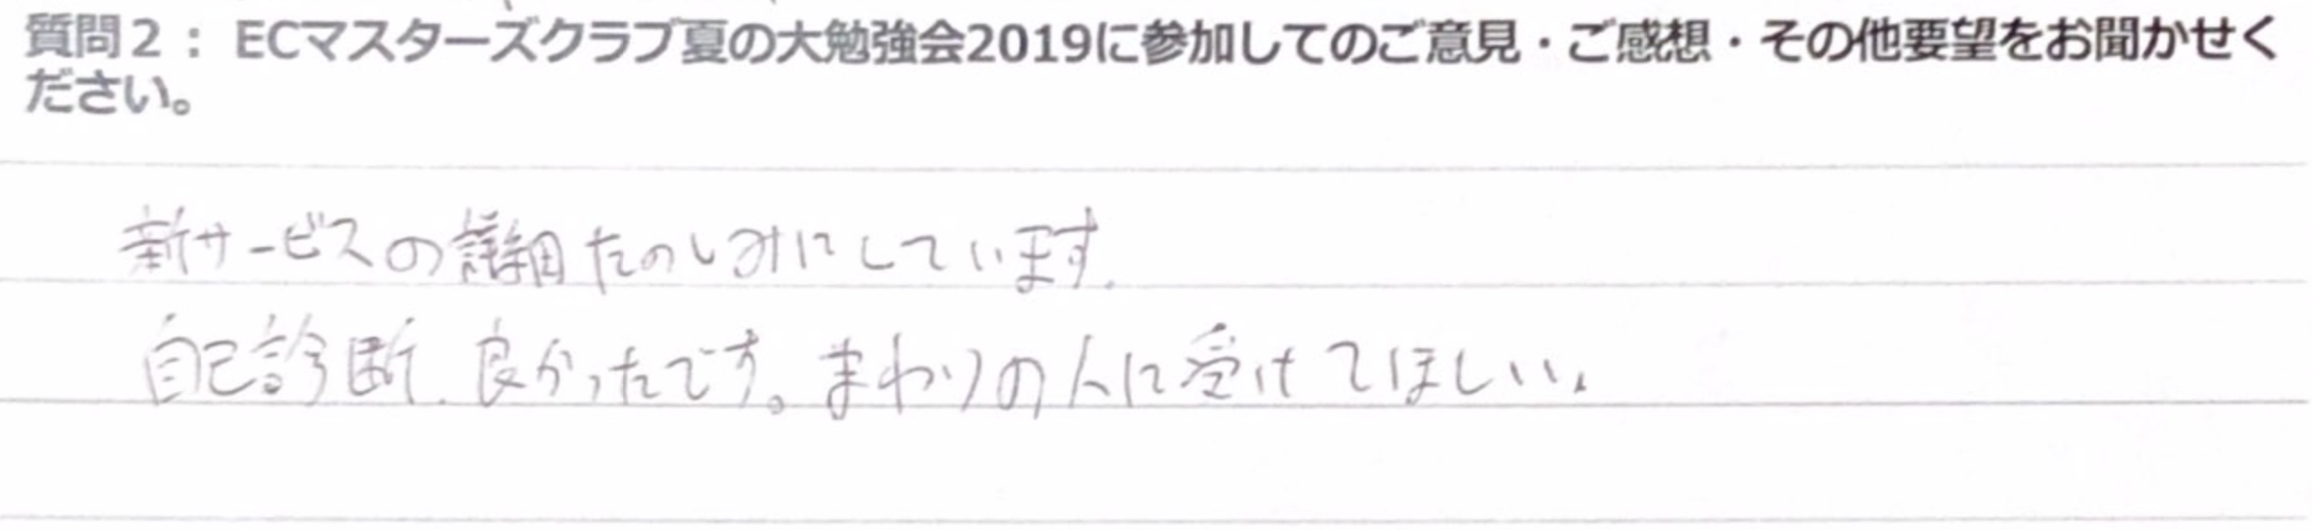 質問2：ECマスターズクラブ夏の大勉強会2019に参加してのご意見・ご感想・その他要望をお聞かせく
ださい。
新サービスの詳細たのしみにしています.
自己診断、良かったです。まわりの人に受けてほしい、